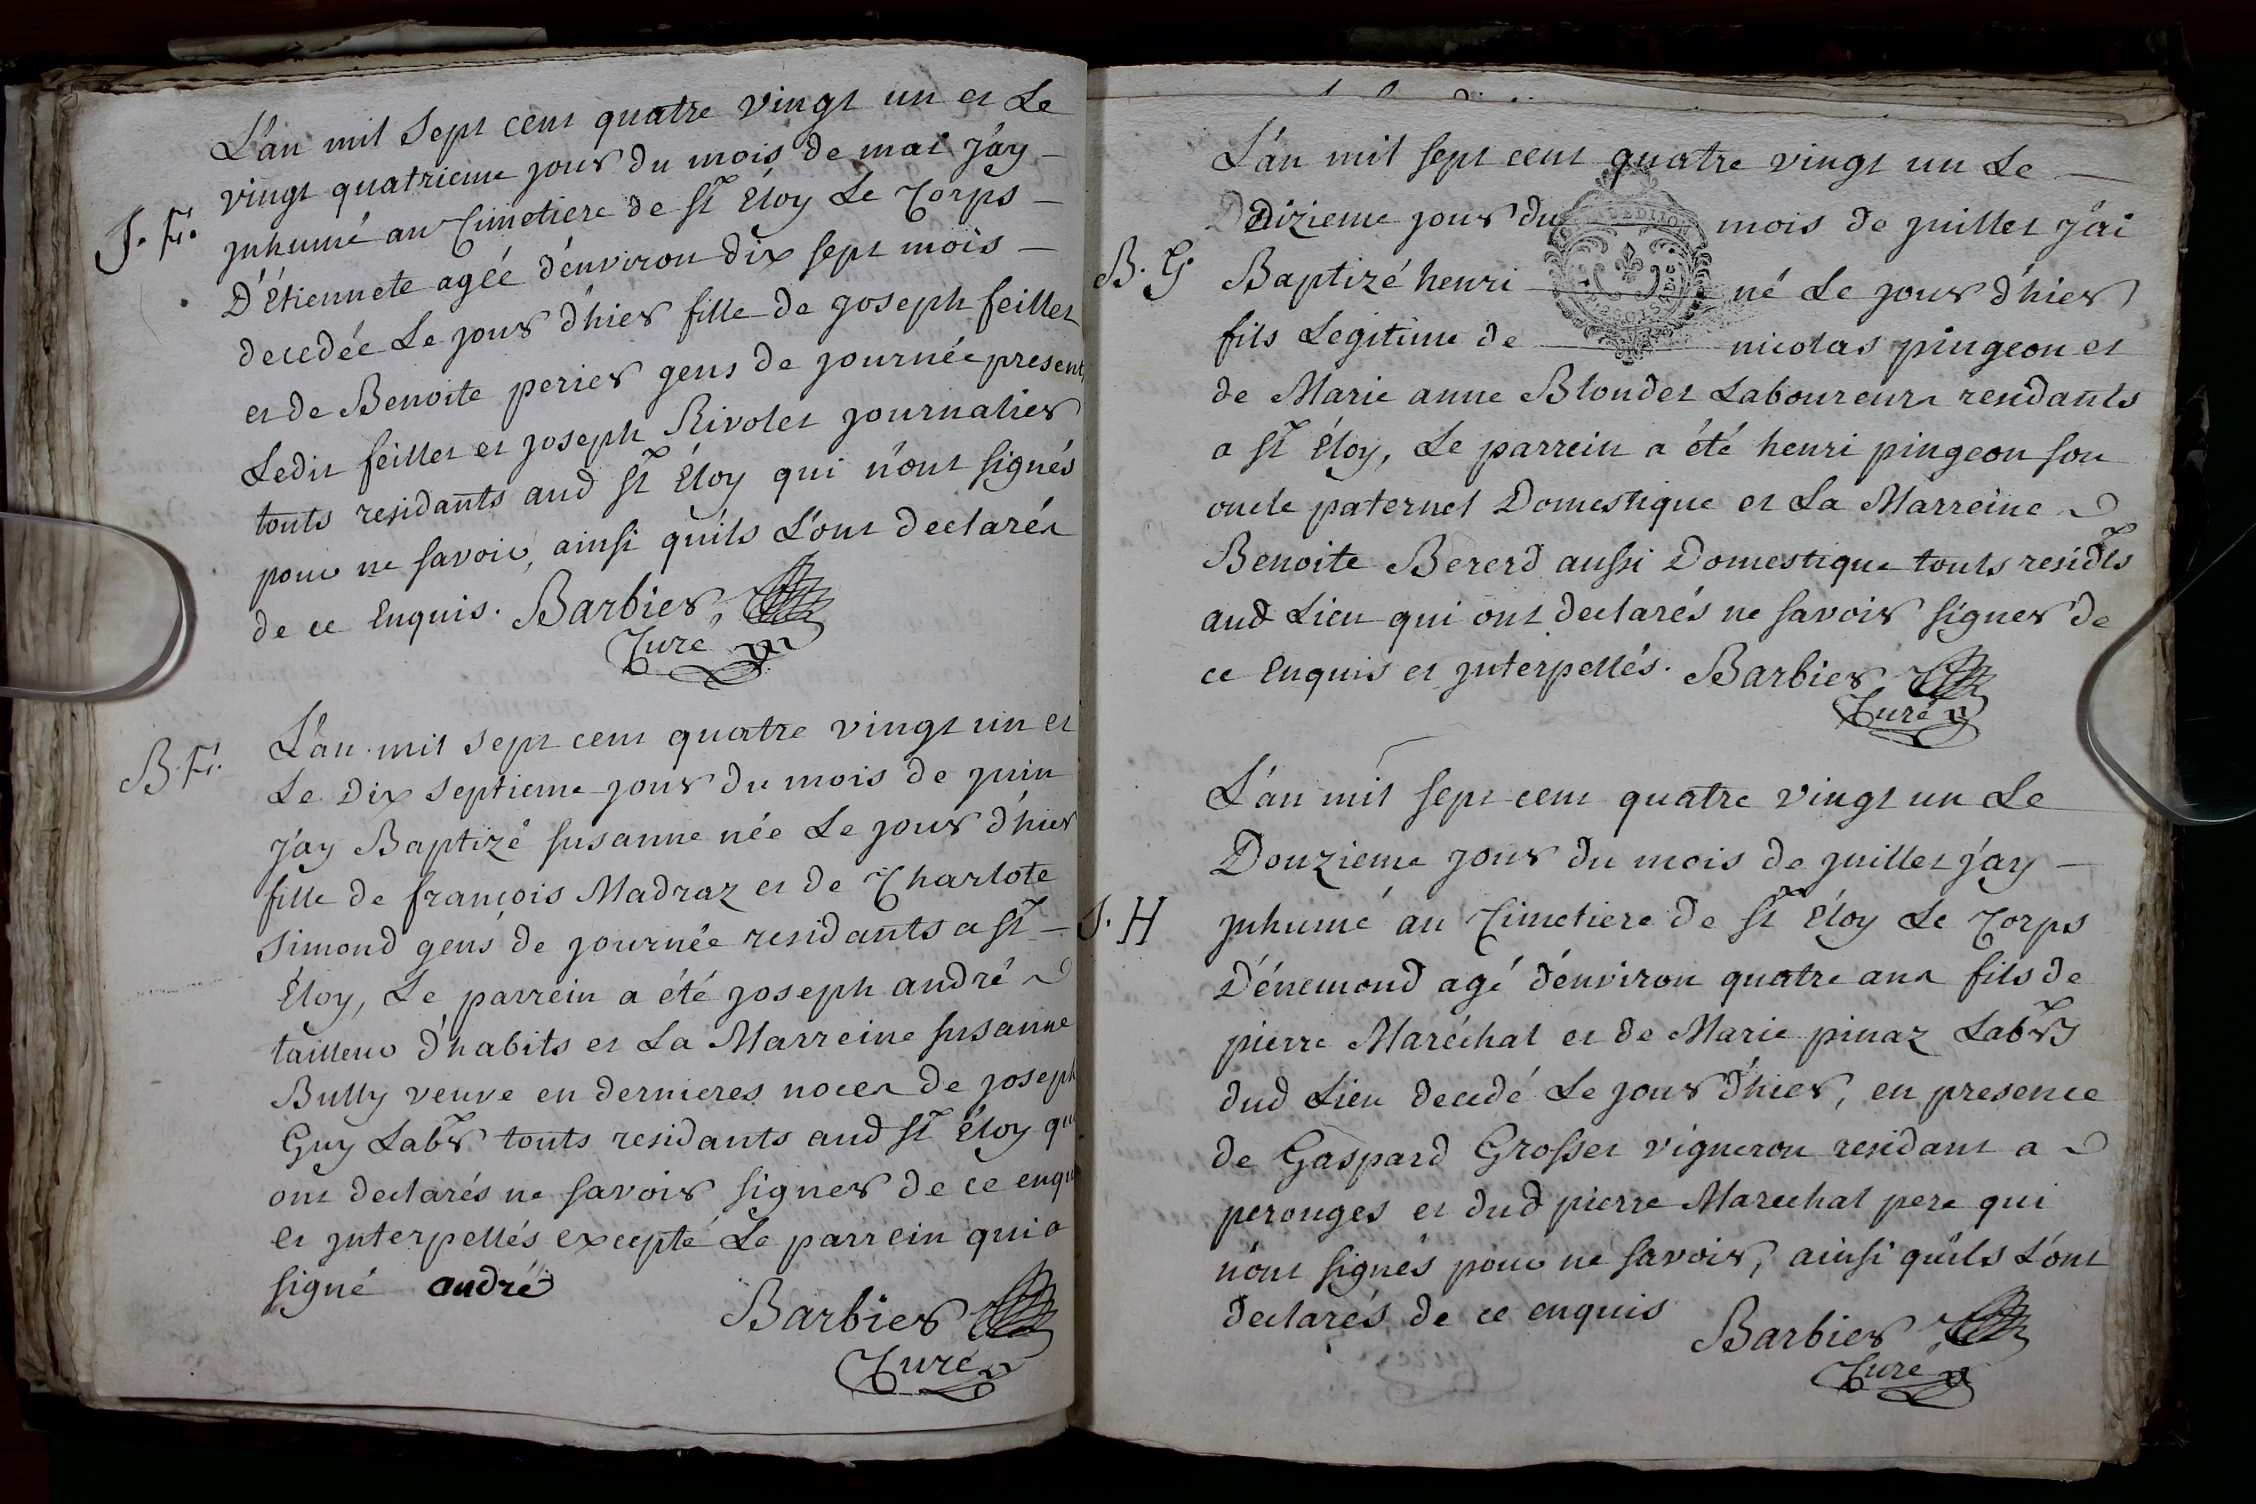 L'an mil sept cent quatre vingt un et Le
vingt quatrieme jour du mois de mai j'ay
J. F. jnhumé au Cimetiere de St Éloy Le Corps
D'Étiennete agéé d'environ dix sept mois
decedée Le jour d'hier fille de joseph feillet
et de Benoite perier gens de journée present
Ledit feillet et joseph Rivolet journalier
touts residants aud St Éloy qui n'ont signés
pour ne savoir, ainsi qu'ils L'ont declarés
de ce Enquis. Barbier
Curé
B. F. L'an mil sept cent quatre vingt un et
Le dix septieme jour du mois de juin
j'ay Baptizé susanne née Le jour d'hier
fille de françois Madraz et de Charlote
simond gens de journée residants a St
Éloy, Le parrein a été joseph andré
tailleur d'habits et La Marreine susanne
Bully veuve en dernieres noces de joseph
Guy Labr touts residants aud St Éloy qui
ont declarés ne savoir signer de ce enqu
et jnterpellés excepté Le parrein qui a
signé andré
Barbier
Curé
L'an mil sept cent quatre vingt un Le
Dizieme jour du mois de juillet j'ai
B. G. Baptizé henri né Le jour d'hier
fils Legitime de nicolas pingeon et
de Marie anne Blondet Laboureurs residants
a St Éloy, Le parrein a été henri pingeon son
oncle paternel Domestique et La Marreine
Benoite Bererd aussi Domestique touts residts
aud Lieu qui ont declarés ne savoir signer de
ce Enquis et jnterpellés. Barbier
Curé
L'an mil sept cent quatre vingt un Le
Douzieme jour du mois de juillet j'ay
J. H jnhumé au Cimetiere de St Éloy Le Corps
D'énemond agé d'environ quatre ans fils de
pierre Maréchal et de Marie pinaz Labrs
dud Lieu decedé Le jour d'hier, en presence
de Gaspard Grosset vigneron residant a
perouges et dud pierre Marechal pere qui
n'ont signés pour ne savoir, ainsi qu'ils L'ont
declarés de ce enquis Barbier
Curé